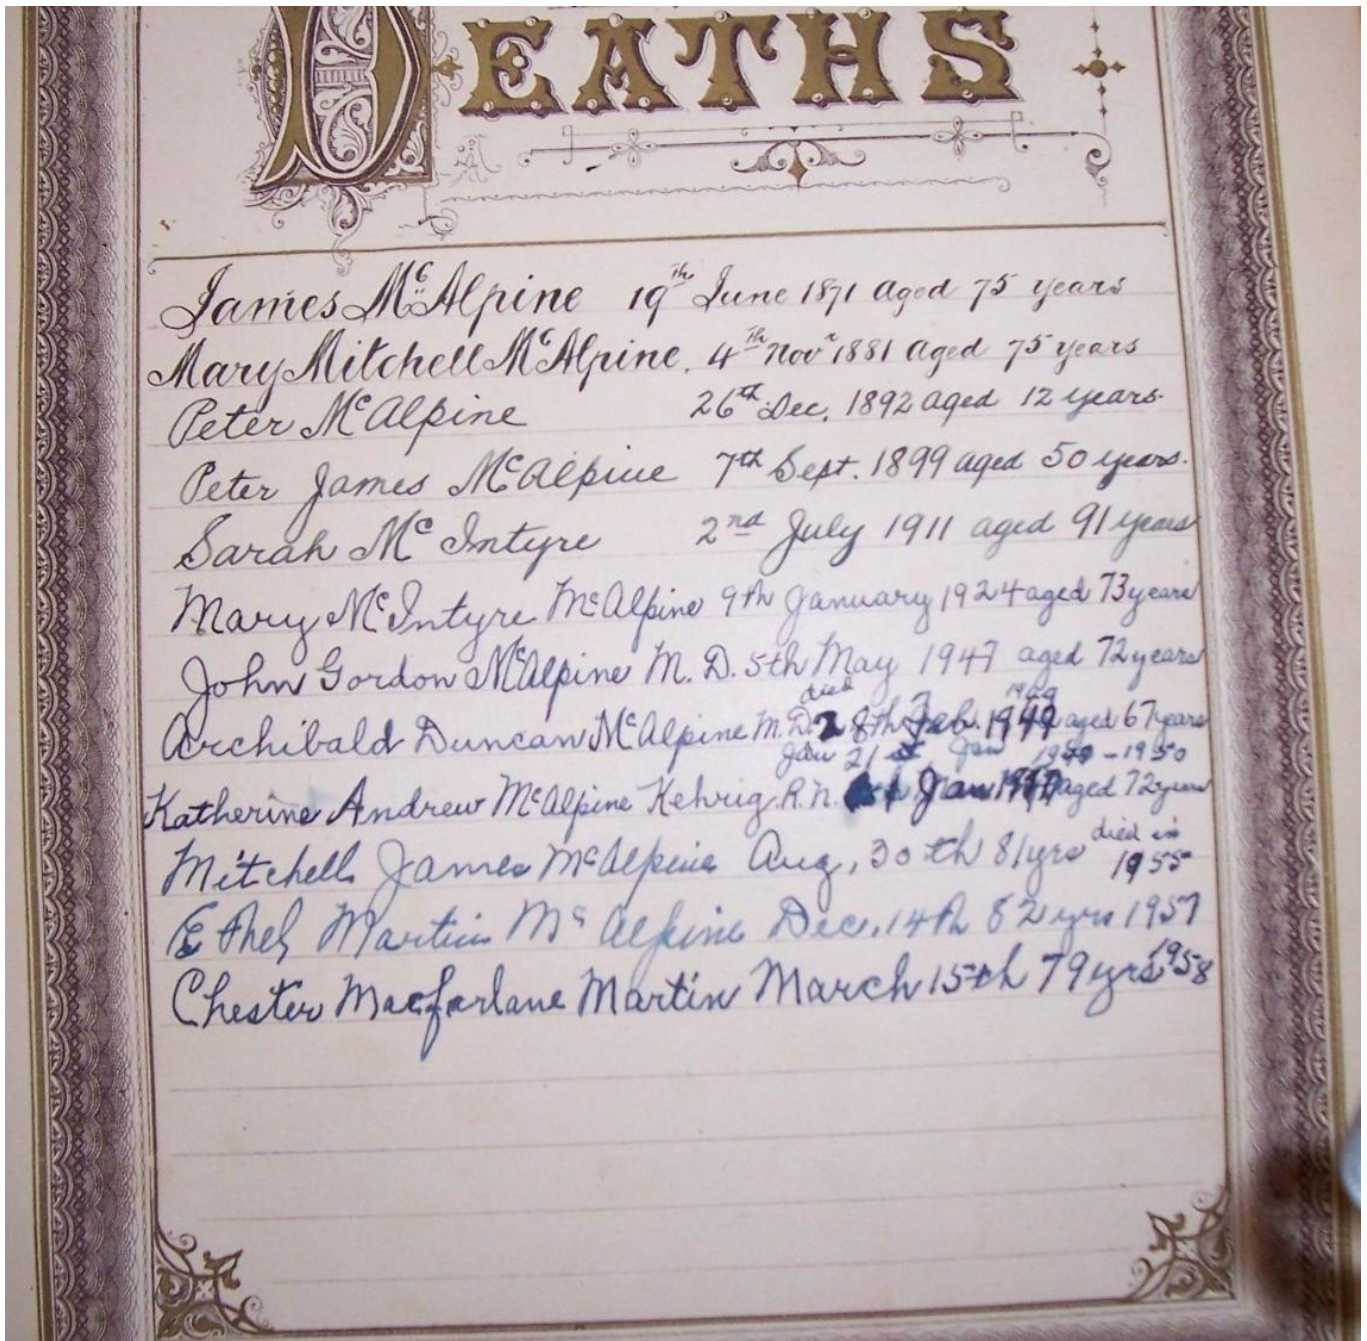 DEATHS
James McAlpine 19th June 1871 aged 75 years
Mary Mitchell McAlpine. 4th Novr 1881 aged 75 years
Peter McAlpine 26th Dec. 1892 aged 12 years.
Peter James McAlpine 7th Sept. 1899 aged 50 years.
Sarah McIntyre 2nd July 1911 aged 91 years
Mary McIntyre McAlpine 9th January 1924 aged 73 years
John Gordon McAlpine M. D. 5th May 1947 aged 72 years
died 1949
Archibald Duncan McAlpine M.D. 28th Feb. 1949 aged 67 years
Jan 21st Jan - 1950
Katherine Andrew McAlpine Kehrig R.N. Jan aged 72 years
died in
Mitchell James McAlpine Aug, 30th 81 yrs 1955
Ethel Martin Mc Alpine Dec. 14th 82 yrs 1957
Chester Macfarlane Martin March 15th 79 yrs 1958